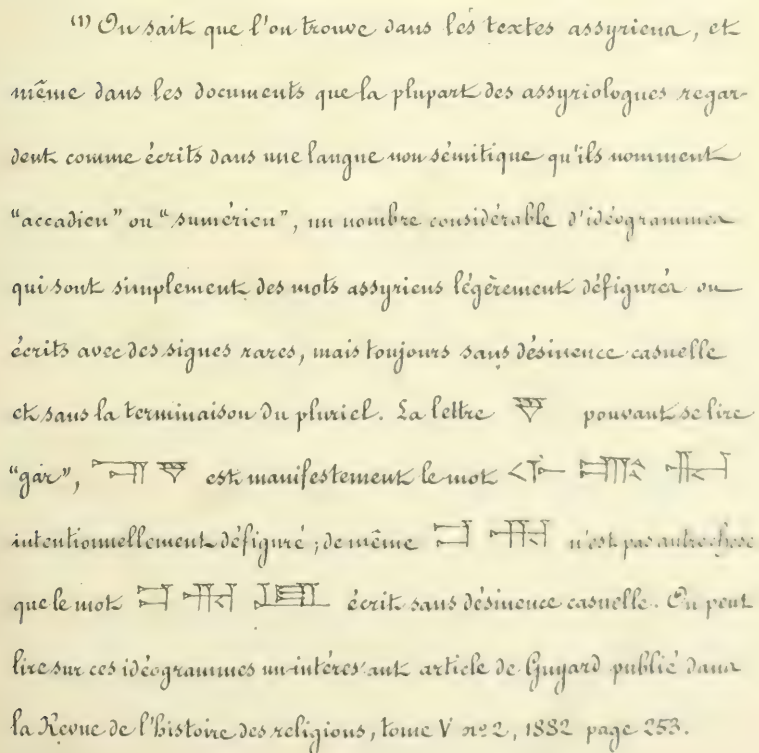 (1) On sait que l'on trouve dans les textes assyriens, et
même dans les documents que la plupart des assyriologues regar-
dent comme écrits dans une langue non sémitique qu'ils nomment
"accadien" ou "sumérien", un nombre considérable d'idéogrammes
qui sont simplement des mots assyriens légèrement défigurés ou
écrits avec des signes rares, mais toujours sans désinence casuelle
et sans la terminaison du pluriel. La lettre 𒃻 pouvant se lire
"gár", 𒃻 est manifestement le mot
intentionnellement défiguré ; de même n'est pas autre chose
que le mot écrit sans désinence casuelle. On peut
lire sur ces idéogrammes un intéressant article de Guyard publié dans
la Revue de l'histoire des religions, tome V nº 2, 1882 page 253.